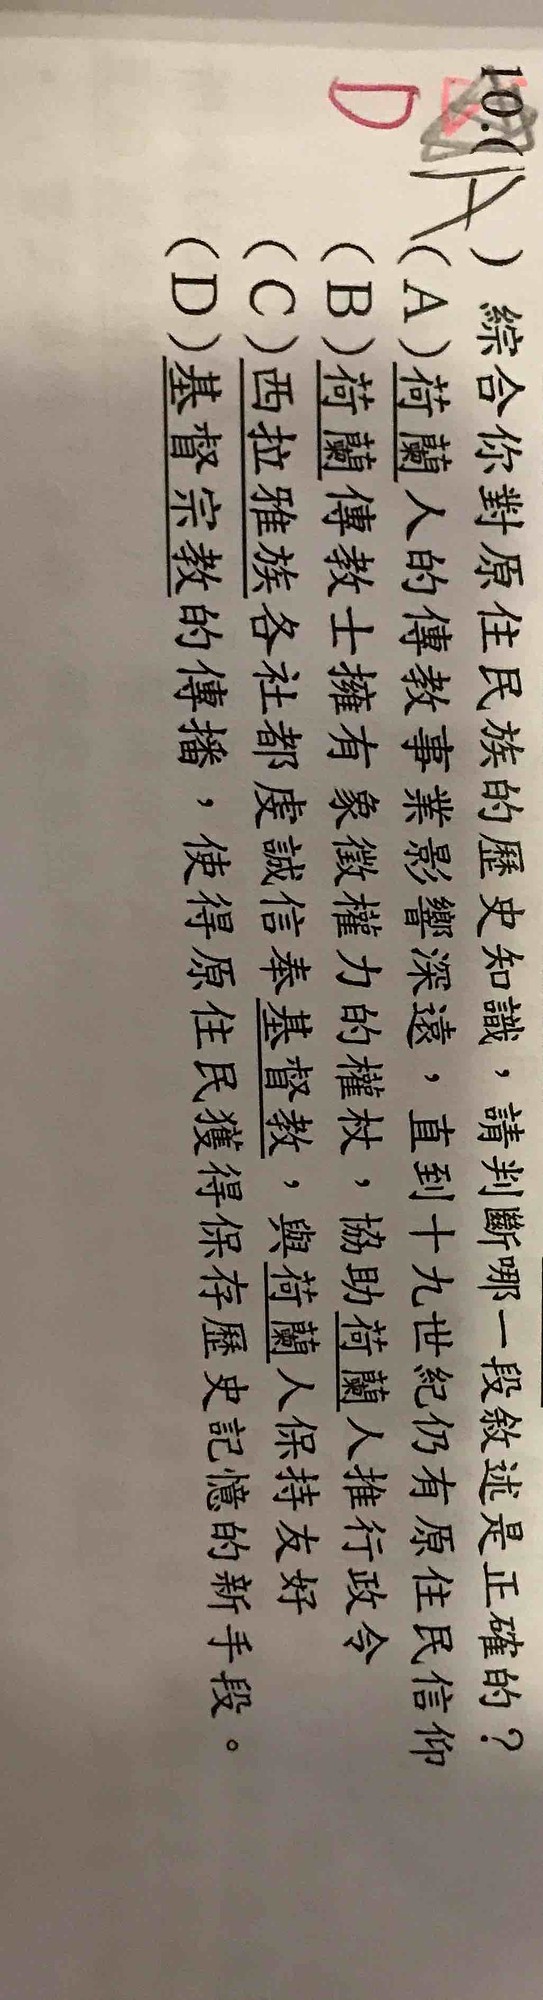 10.(A) 綜合你對原住民族的歷史知識，請判斷哪一段敘述是正確的？
D
(A)荷蘭人的傳教事業影響深遠，直到十九世紀仍有原住民信仰
(B)荷蘭傳教士擁有象徵權力的權杖，協助荷蘭人推行政令
(C)西拉雅族各社都虔誠信奉基督教，與荷蘭人保持友好
(D)基督宗教的傳播，使得原住民獲得保存歷史記憶的新手段。